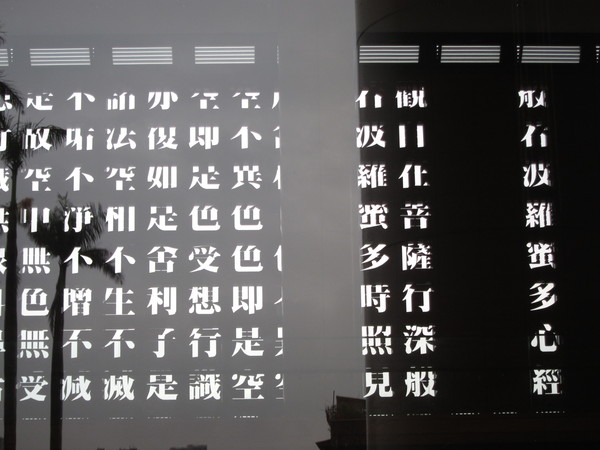 般若波羅蜜多心經
觀自在菩薩行深般
若波羅蜜多時照見
空不異色色即是空
空即是色受想行識
亦復如是舍利子是
諸法空相不生不滅
不垢不淨不增不減
是故空中無色無受